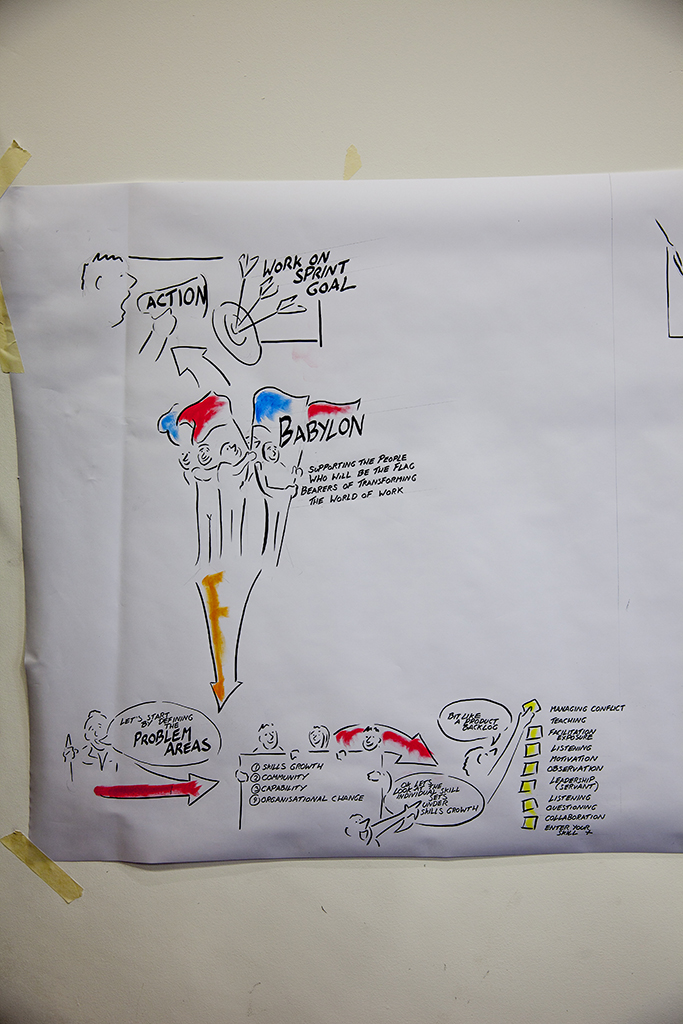 ACTION
WORK ON
SPRINT
GOAL
BABYLON
SUPPORTING THE PEOPLE
WHO WILL BE THE FLAG
BEARERS OF TRANSFORMING
THE WORLD OF WORK
LET'S START
BY DEFINING
THE
PROBLEM
AREAS
① SKILLS GROWTH
② COMMUNITY
③ CAPABILITY
④ ORGANISATIONAL CHANGE
OK LET'S
LOOK AT THE
INDIVIDUAL SKILL
SETS
UNDER
SKILLS GROWTH
BIT LIKE
A PRODUCT
BACKLOG
MANAGING CONFLICT
TEACHING
FACILITATION
EXPOSURE
LISTENING
MOTIVATION
OBSERVATION
LEADERSHIP
(SERVANT)
LISTENING
QUESTIONING
COLLABORATION
ENTER YOUR
SKILL